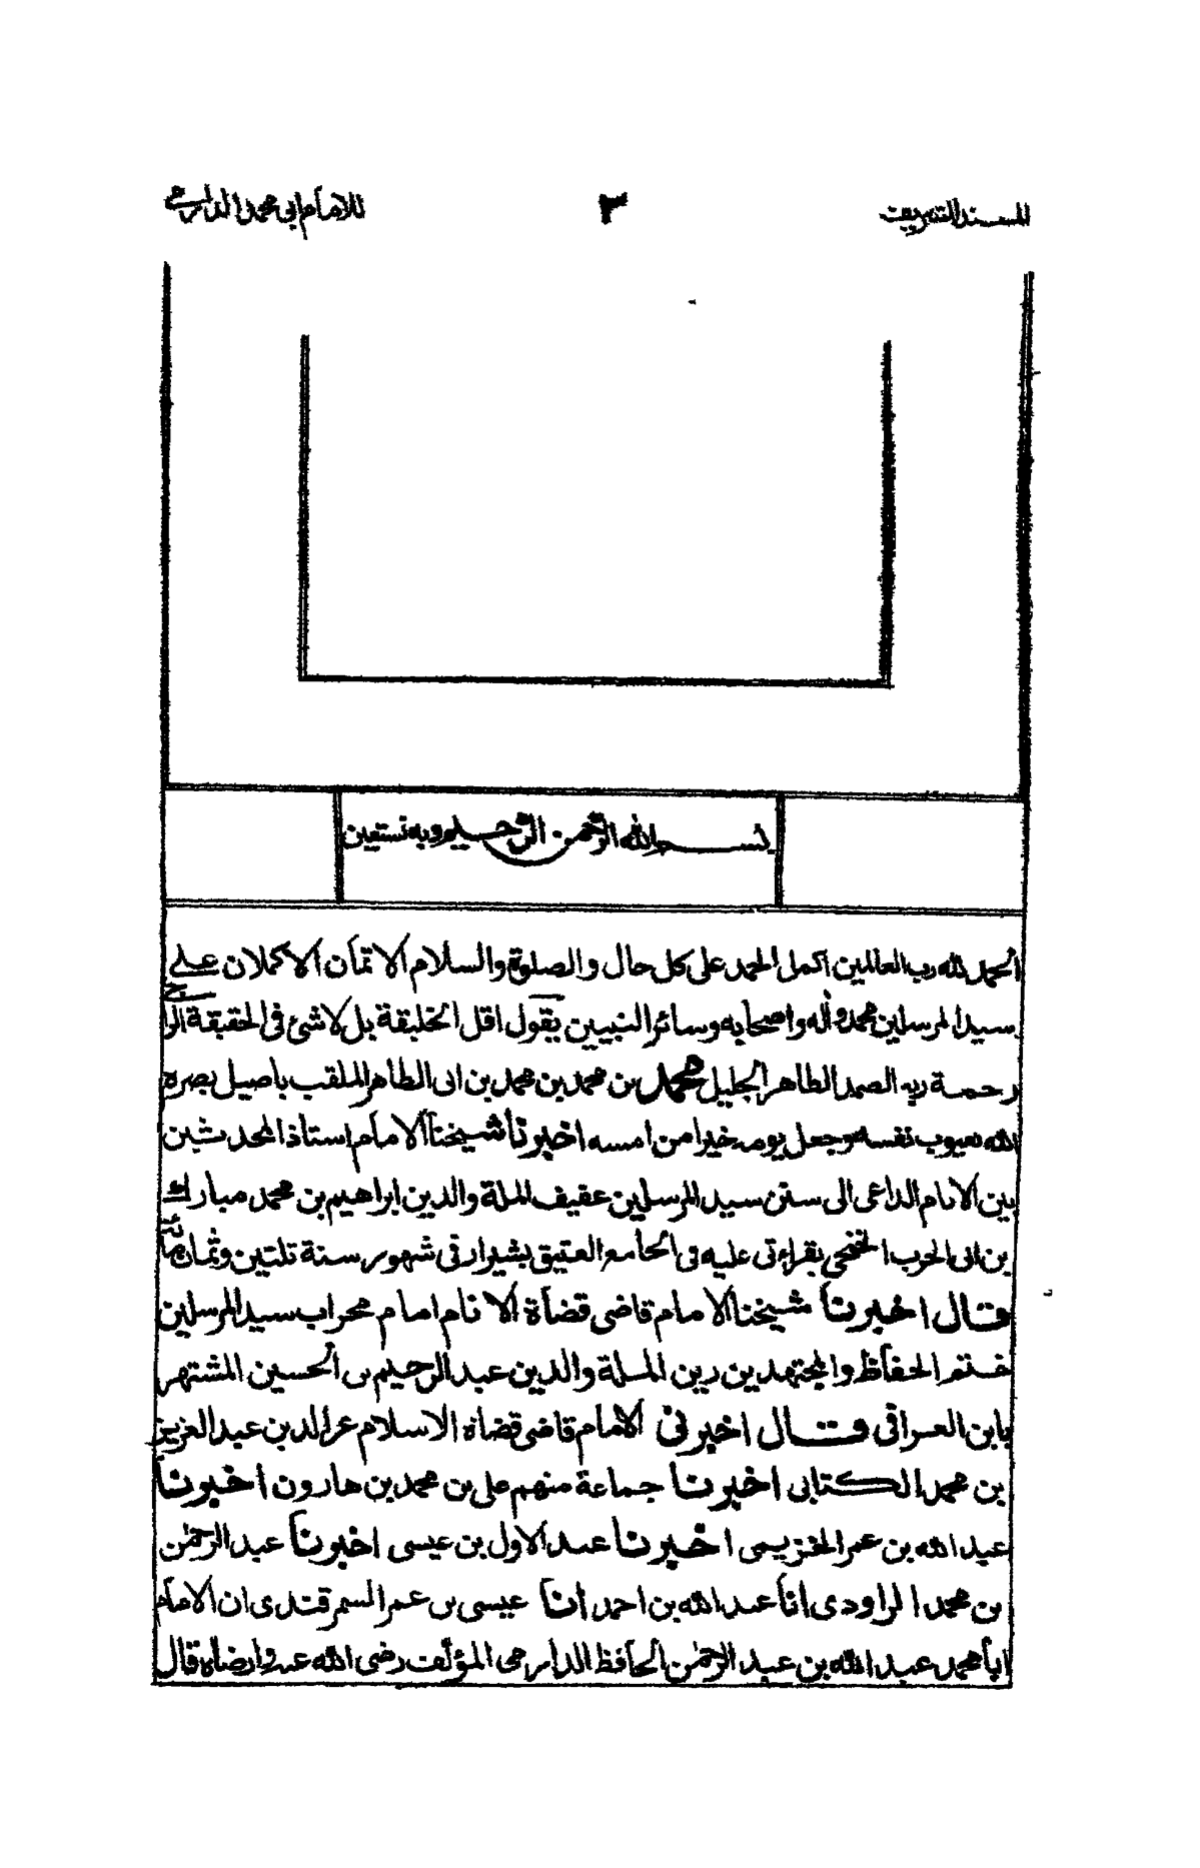 المسند الشريف ٣ للامام ابى محمد الدارمى
بسم الله الرحمن الرحيم وبه نستعين
الحمد لله رب العالمين اكمل الحمد على كل حال والصلوة والسلام الاتمان الاكملان على
سيد المرسلين محمد واله واصحابه وسائر النبيين يقول اقل الخليقة بل لاشئ فى الحقيقة الراجى
رحمة ربه الصمد الطاهر الجليل محمد بن محمد بن محمد بن ابى الطاهر الملقب باصيل بصره
الله بعيوب نفسه وجعل يومه خيرا من امسه اخبرنا شيخنا الامام استاذ المحدثين
بين الانام الداعى الى سنن سيد المرسلين عفيف الملة والدين ابراهيم بن محمد مبارك
بن ابى الحرب الخنجى بقراءتى عليه فى الجامع العتيق بشيراز فى شهور سنة ثلثين وثمان مائة
قال اخبرنا شيخنا الامام قاضى قضاة الانام امام محراب سيد المرسلين
ختم الحفاظ والمجتهدين زين الملة والدين عبد الرحيم بن الحسين المشتهر
بابن العراقى قال اخبرنى الامام قاضى قضاة الاسلام عز الدين عبد العزيز
بن محمد الكتابى اخبرنا جماعة منهم على بن محمد بن هارون اخبرنا
عبد الله بن عمر الخزيمى اخبرنا عبد الاول بن عيسى اخبرنا عبد الرحمن
بن محمد الراودى انا عبد الله بن احمد انا عيسى بن عمر السمرقندى ان الامام
ابا محمد عبد الله بن عبد الرحمن الحافظ الدارمى المؤلف رضى الله عنه وارضاه قال